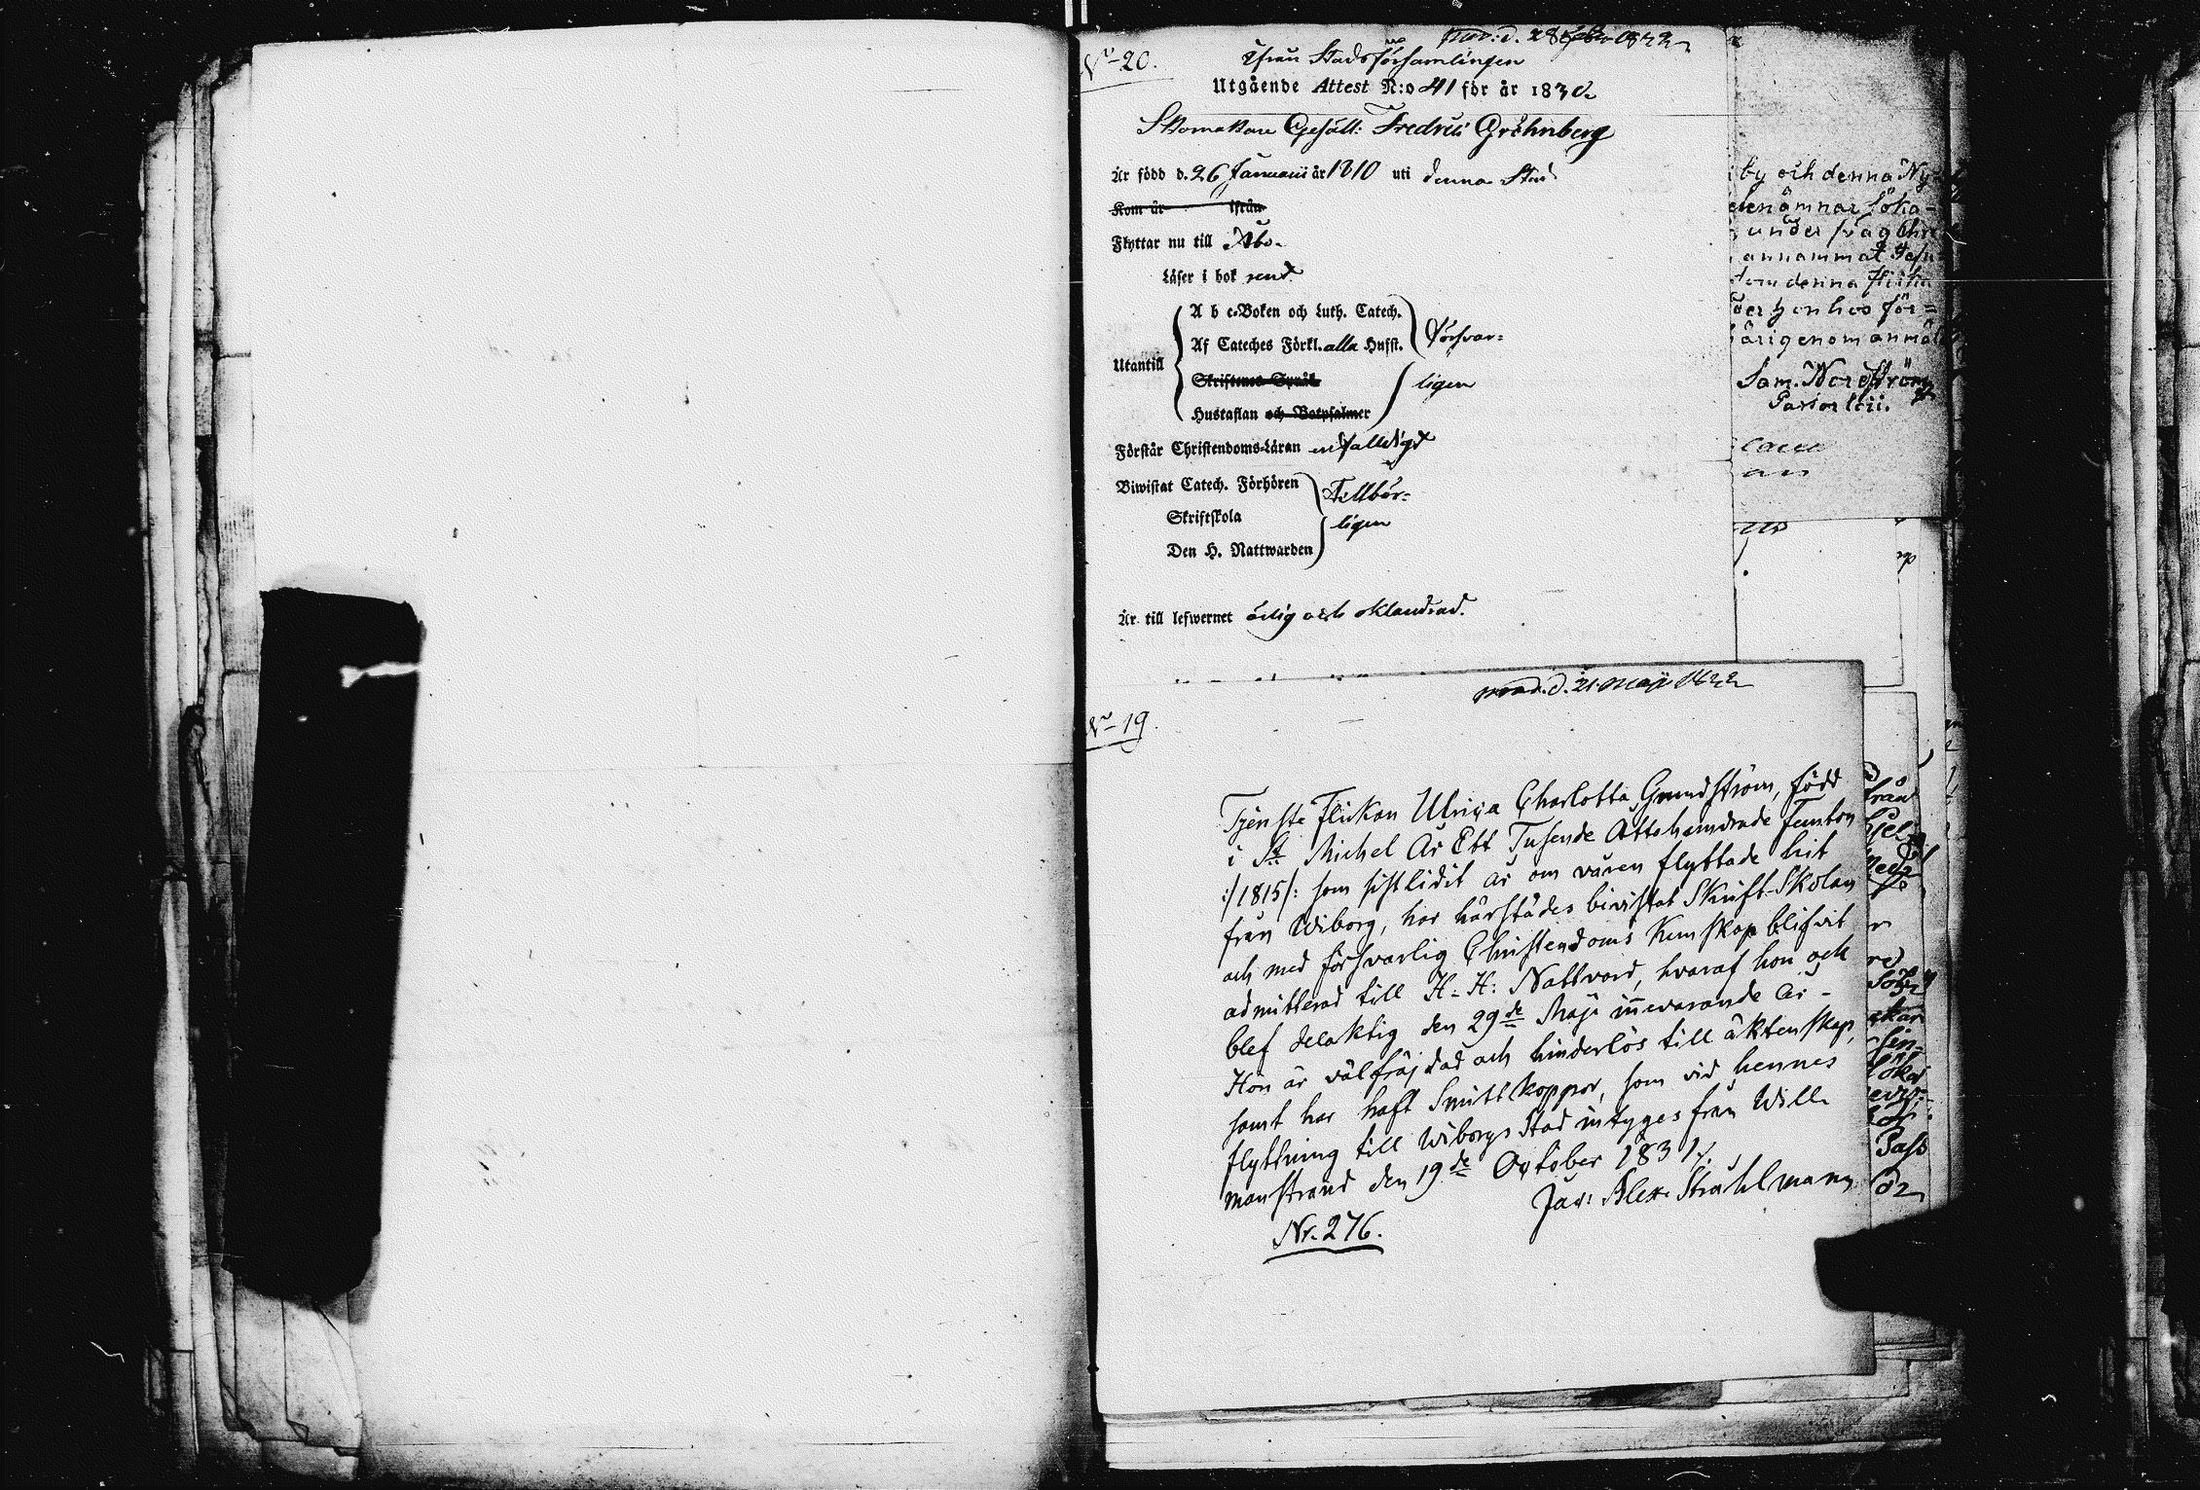 No 20.
ifrån Stadsförsamlingen
Utgående Attest N:o 41 för år 183
Skomakare Gesäll: Fredric Gröhnberg
Är född d. 26 Januarii år 1810 uti denna Stad
Kom år ifrån
Flyttar nu till Åbo.
Läser i bok rent
Utantill
A b c-Boken och Luth. Catech.
Af Cateches Förkl. alla Hufst.
Försvar=
ligen
Skriftenes Språk
Hustaflan och Botpsalmer
Förstår Christendoms-Läran enfalldigt
Biwistat Catech. Förhören
Tillbör=
Skriftskola
ligen
Den H. Nattwarden
Är till lefwernet ärlig och oklandrad.
by och denna Ny
ämnar söka
under
annammat
denna
hon hos för=
härigenom anmäl
Sam. Nordström
Pastor
d. 21 Maji
No 19.
Tjenste Flickan Ulrica Charlotta Grundström, född
i St Michel År Ett Tusende Åttahundrade Femton
:/1815/: som sistlidit år om våren flyttade hit
från Wiborg, har härstädes bivistat Skrift-Skolan
och med försvarlig Christendoms Kunskap blifvit
admitterad till H. H: Nattvard, hvaraf hon och
blef delaktig den 29de Maji innevarande år -
Hon är välfräjdad och hinderlös till äktenskap,
samt har haft Smittkoppor, som vid hennes
flyttning till Wiborgs Stad intyges från Will-
manstrand den 19de October 1831.
Jac: Alex. Strahlmann
Nr. 276.
Pass